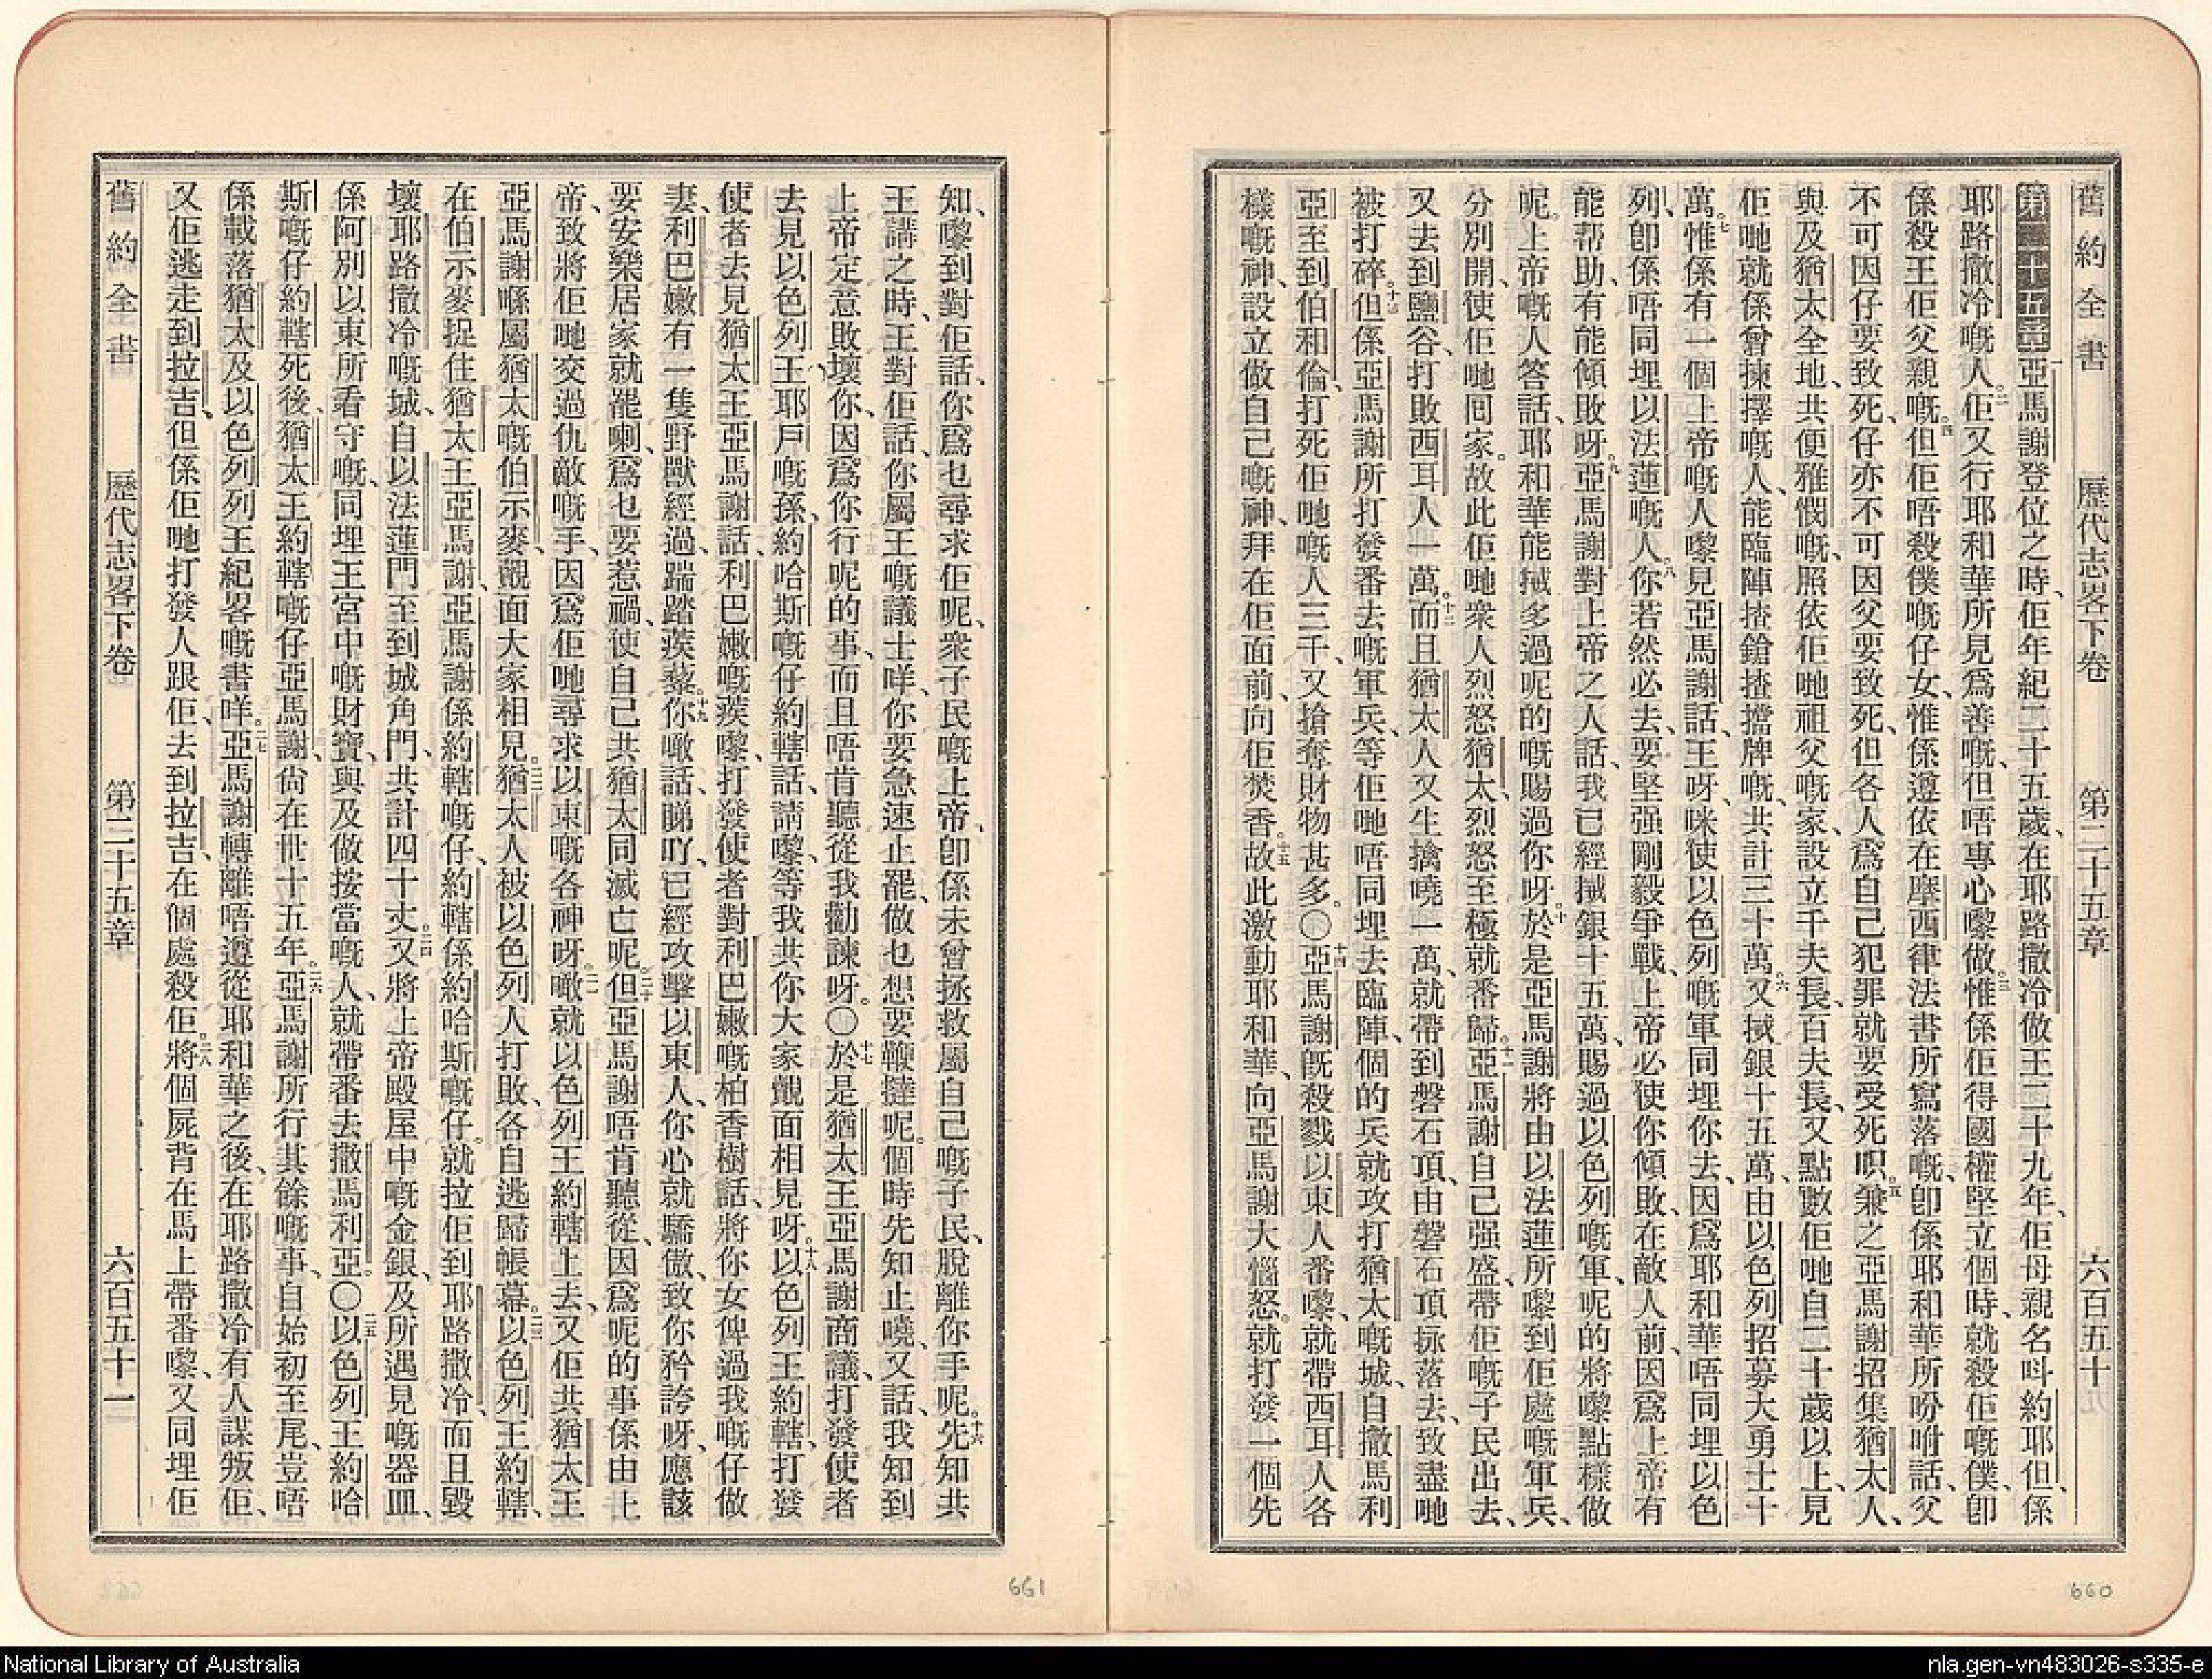 舊約全書 歷代志畧下卷 第二十五章 六百五十
第二十五章 一亞馬謝登位之時、佢年紀二十五歲、在耶路撒冷做王二十九年、佢母親名呌約耶但、係
耶路撒冷嘅人。二佢又行耶和華所見爲善嘅、但唔專心嚟做。三惟係佢得國權堅立個時、就殺佢嘅僕、卽
係殺王佢父親嘅。四但佢唔殺僕嘅仔女、惟係遵依在摩西律法書所寫落嘅、卽係耶和華所吩咐話、父
不可因仔要致死、仔亦不可因父要致死、但各人爲自己犯罪就要受死呮。五兼之亞馬謝招集猶太人、
與及猶太全地、共便雅憫嘅、照依佢哋祖父嘅家、設立千夫長、百夫長、又點數佢哋自二十歲以上、見
佢哋就係曾揀擇嘅人、能臨陣揸鎗揸擋牌嘅、共計三十萬。六又㧜銀十五萬、由以色列招募大勇士十
萬。七惟係有一個上帝嘅人嚟見亞馬謝話、王呀、咪使以色列嘅軍同埋你去、因爲耶和華唔同埋以色
列、卽係唔同埋以法蓮嘅人。八你若然必去、要堅强剛毅爭戰、上帝必使你傾敗、在敵人前、因爲上帝有
能帮助、有能傾敗呀。九亞馬謝對上帝之人話、我已經㧜銀十五萬、賜過以色列嘅軍、呢的將嚟點樣做
呢。上帝嘅人答話、耶和華能㧜多過呢的嘅賜過你呀。十於是亞馬謝將由以法蓮所嚟到佢處嘅軍兵、
分別開、使佢哋囘家。故此佢哋衆人烈怒猶太、烈怒至極就番歸。十一亞馬謝自己强盛、帶佢嘅子民出去、
又去到鹽谷、打敗西耳人一萬。十二而且猶太人又生擒曉一萬、就帶到磐石頂、由磐石頂㧒落去、致盡哋
被打碎。十三但係亞馬謝所打發番去嘅軍兵、等佢哋唔同埋去臨陣、個的兵就攻打猶太嘅城、自撒馬利
亞至到伯和倫、打死佢哋嘅人三千、又搶奪財物甚多。〇十四亞馬謝旣殺戮以東人番嚟、就帶西耳人各
樣嘅神、設立做自己嘅神、拜在佢面前、向佢焚香。十五故此激動耶和華、向亞馬謝大惱怒。就打發一個先
知、嚟到對佢話、你爲乜尋求佢呢、衆子民嘅上帝、卽係未曾拯救屬自己嘅子民、脫離你手呢。十六先知共
王講之時、王對佢話、你屬王嘅議士咩、你要急速止罷、做乜想要鞭撻呢。個時先知止曉、又話、我知到
上帝定意敗壞你、因爲你行呢的事、而且唔肯聽從我勸諫呀。〇十七於是猶太王亞馬謝商議、打發使者
去見以色列王耶戶嘅孫、約哈斯嘅仔約轄話、請嚟、等我共你大家覿面相見呀。十八以色列王約轄、打發
使者去見猶太王亞馬謝話、利巴嫩嘅蒺嚟、打發使者對利巴嫩嘅柏香樹話、將你女俾過我嘅仔做
妻、利巴嫩有一隻野獸經過、踹踏蒺藜。十九你噉話、睇吖、已經攻擊以東人、你心就驕傲、致你矜誇呀、應該
要安樂居家就罷喇、爲乜要惹禍、使自己共猶太同滅亡呢。二十但亞馬謝唔肯聽從、因爲呢的事係由上
帝、致將佢哋交過仇敵嘅手、因爲佢哋尋求以東嘅各神呀。二一噉就以色列王約轄上去、又佢共猶太王
亞馬謝喺屬猶太嘅伯示麥、覿面大家相見。二二猶太人被以色列人打敗、各自逃歸帳幕。二三以色列王約轄、
在伯示麥捉住猶太王亞馬謝、亞馬謝係約轄嘅仔、約轄係約哈斯嘅仔。就拉佢到耶路撒冷、而且毀
壞耶路撒冷嘅城、自以法蓮門至到城角門、共計四十丈。二四又將上帝殿屋中嘅金銀、及所遇見嘅器皿、
係阿別以東所看守嘅、同埋王宮中嘅財寶、與及做按當嘅人、就帶番去撒馬利亞。〇二五以色列王約哈
斯嘅仔約轄死後、猶太王約轄嘅仔亞馬謝、尙在世十五年。二六亞馬謝所行其餘嘅事、自始初至尾、豈唔
係載落猶太及以色列列王紀畧嘅書咩。二七亞馬謝轉離唔遵從耶和華之後、在耶路撒冷有人謀叛佢、
又佢逃走到拉吉、但係佢哋打發人跟佢、去到拉吉、在個處殺佢。二八將個屍背在馬上帶番嚟、又同埋佢
舊約全書 歷代志畧下卷 第二十五章 六百五十一
660
661
National Library of Australia
nla.gen-vn483026-s335-e